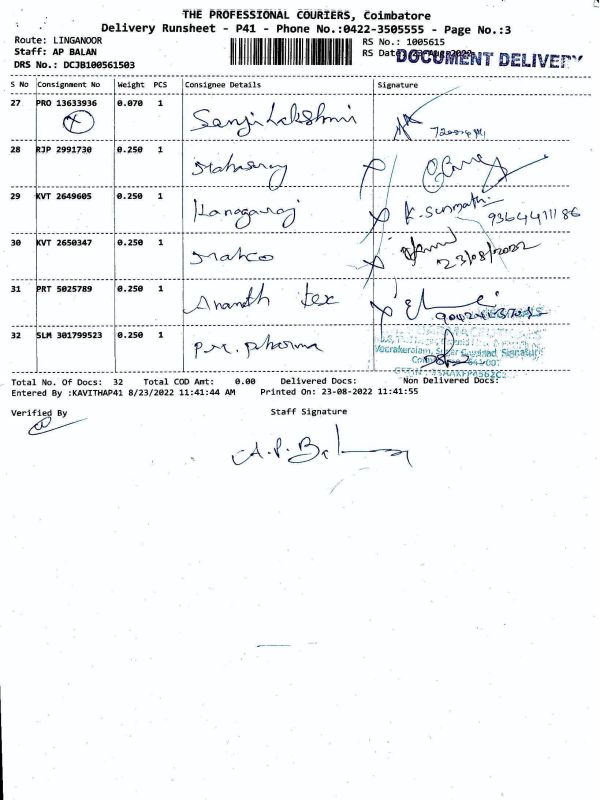 THE PROFESSIONAL COURIERS, Coimbatore
Delivery Runsheet - P41 - Phone No.:0422-3505555 - Page No.:3
Route: LINGANOOR
RS No.: 1005615
Staff: AP BALAN
RS Dat 23-Aug-2022
DOCUMENT DELIVERY
DRS No.: DCJB100561503
S No Consignment No Weight PCS Consignee Details Signature
27 PRO 13633936 0.070 1 Sanjilakshmi
28 RJP 2991730 0.250 1
29 KVT 2649605 0.250 1 Kanagaraj K. Sunmathi
9364411186
30 KVT 2650347 0.250 1 Mahco
23/08/2022
31 PRT 5025789 0.250 1 Ananth tex
32 SLM 301799523 0.250 1 P.M. Pharma
Veerakeralam,
Signature
Total No. Of Docs: 32 Total COD Amt: 0.00 Delivered Docs: Non Delivered Docs:
Entered By :KAVITHAP41 8/23/2022 11:41:44 AM Printed On: 23-08-2022 11:41:55
Verified By Staff Signature
A.P. Bal